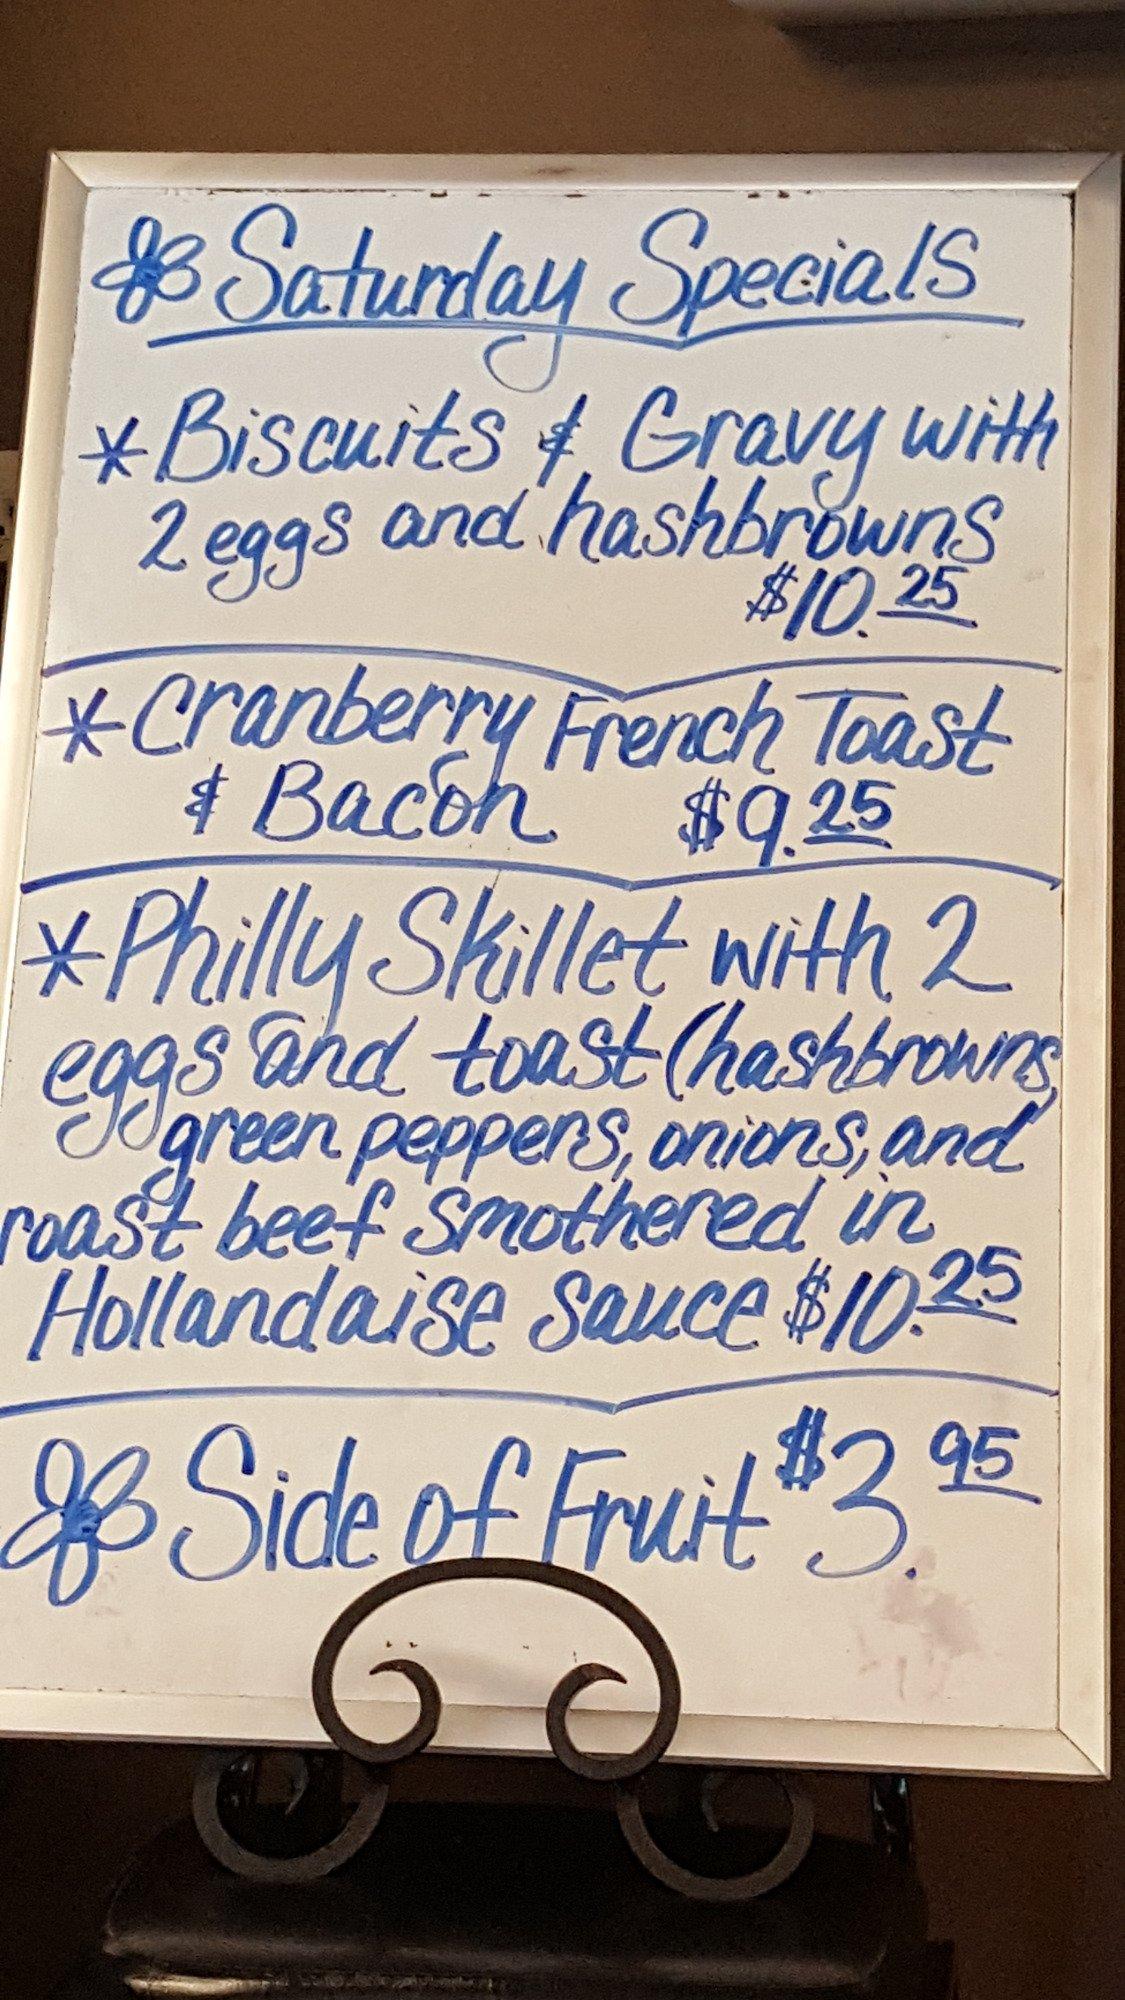 Saturday Specials
* Biscuits & Gravy with
2 eggs and hashbrowns
$10.25
* Cranberry French Toast
& Bacon $9.25
* Philly Skillet with 2
eggs and toast (hashbrowns,
green peppers, onions, and
roast beef smothered in
Hollandaise Sauce $10.25
Side of Fruit $3.95